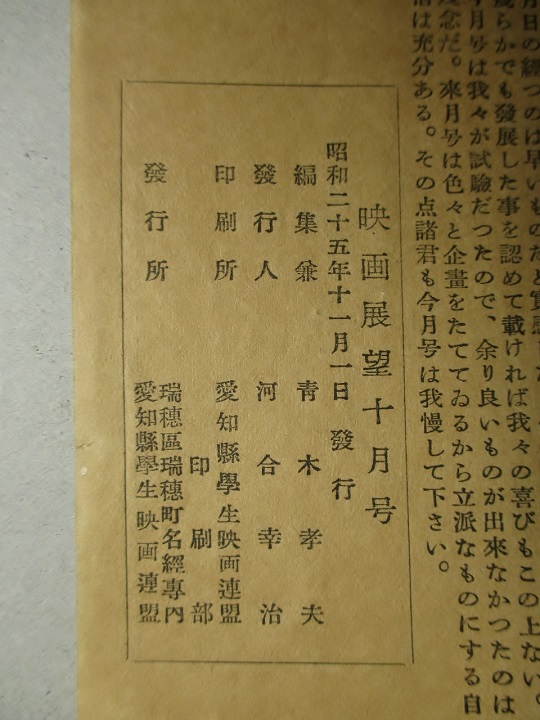 月日の經つのは早いものだと
度らかでも發展した事を認めて載ければ我々の喜びもこの上ない。
今月号は我々が試驗だつたので、余り良いものが出來なかつたのは
念だ。來月号は色々と企畫をたててゐるから立派なものにする自
信は充分ある。その点諸君も今月号は我慢して下さい。
映画展望十月号
昭和二十五年十一月一日 發行
編集兼 青木孝夫
發行人 河合幸治
印刷所 愛知縣學生映画連盟
印刷部
發行所 瑞穗區瑞穗町名經專內
愛知縣學生映画連盟